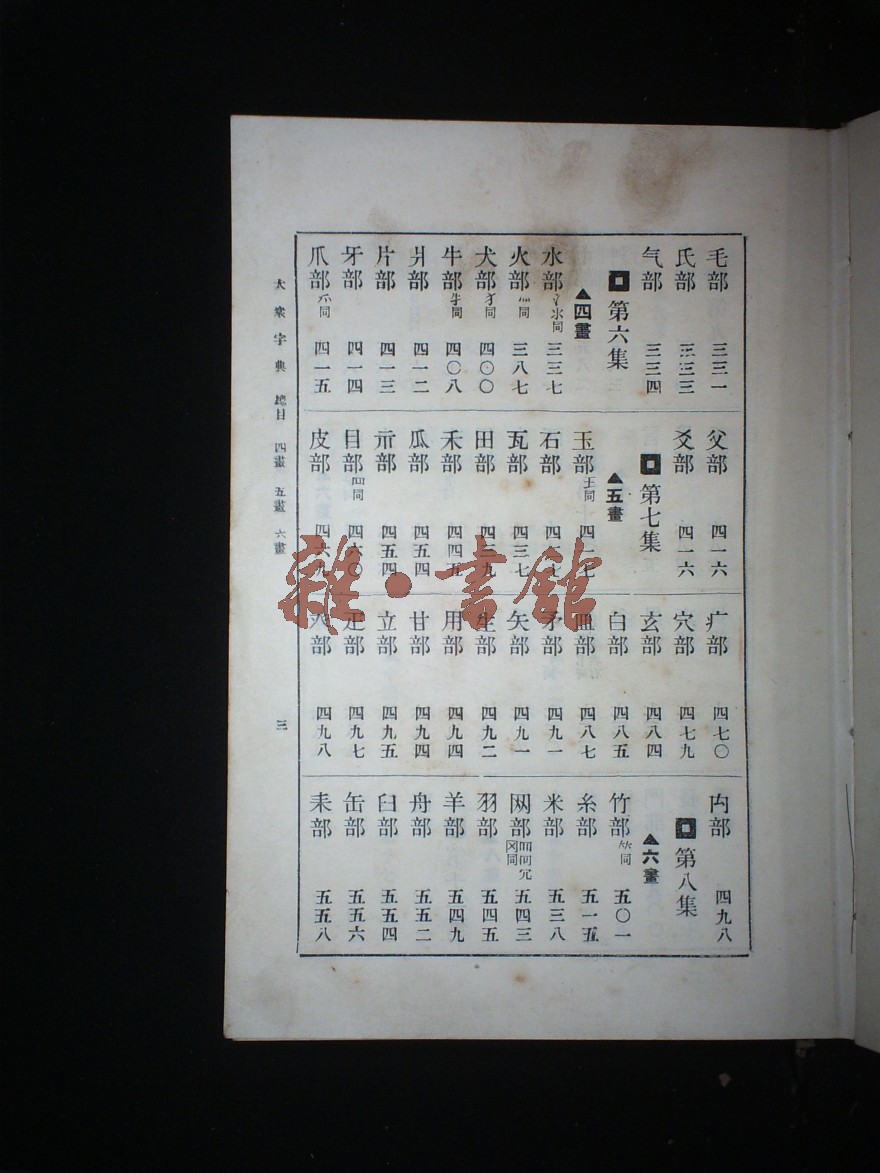 毛部 三三一
氏部 三三三
气部 三三四
第六集
▲四畫
水部氵氺同 三三七
火部灬同 三八七
犬部犭同 四〇〇
牛部牜同 四〇八
爿部 四一二
片部 四一三
牙部 四一四
爪部爫同 四一五
父部 四一六
爻部 四一六
第七集
▲五畫
玉部王同
石部
瓦部 四三七
田部 四三九
禾部 四四五
瓜部 四五四
示部 四五四
目部罒同 四六〇
皮部 四六九
疒部 四七〇
穴部 四七九
玄部 四八四
白部 四八五
皿部 四八七
矛部 四九一
矢部 四九一
生部 四九二
用部 四九四
甘部 四九四
立部 四九五
疋部 四九七
癶部 四九八
禸部 四九八
第八集
▲六畫
竹部⺮同 五〇一
糸部 五一五
米部 五三八
网部 五四三
羽部 五四五
羊部 五四九
舟部 五五二
臼部 五五四
缶部 五五六
耒部 五五八
大衆字典 總目 四畫 五畫 六畫 三
雜·書館